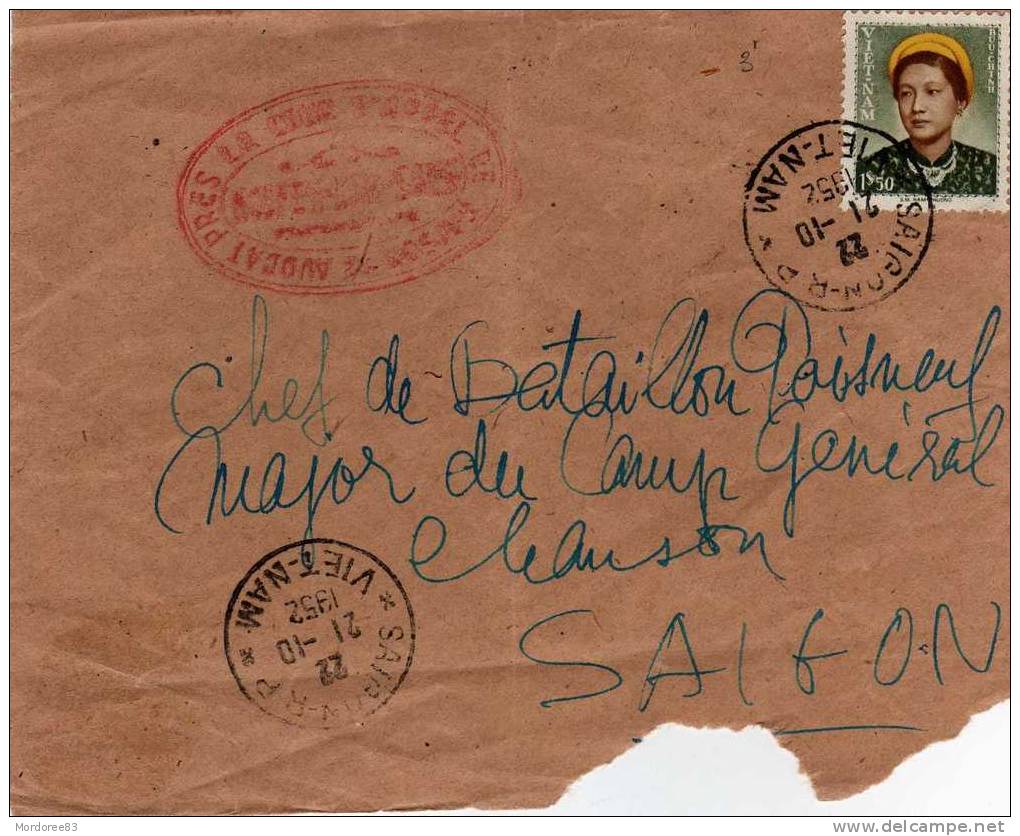 3
VIÊT-NAM
BUU-CHINH
1$50
* SAIGON-R.P *
VIET-NAM
22
21-10
1952
AVOCAT PRÈS LA COUR D'APPEL DE SAIGON
Chef de Bataillon Poisneuf
Major du Camp Général
Chanson
SAIGON
* SAIGON-R.P *
VIET-NAM
22
21-10
1952
Mordoree83
www.delcampe.net